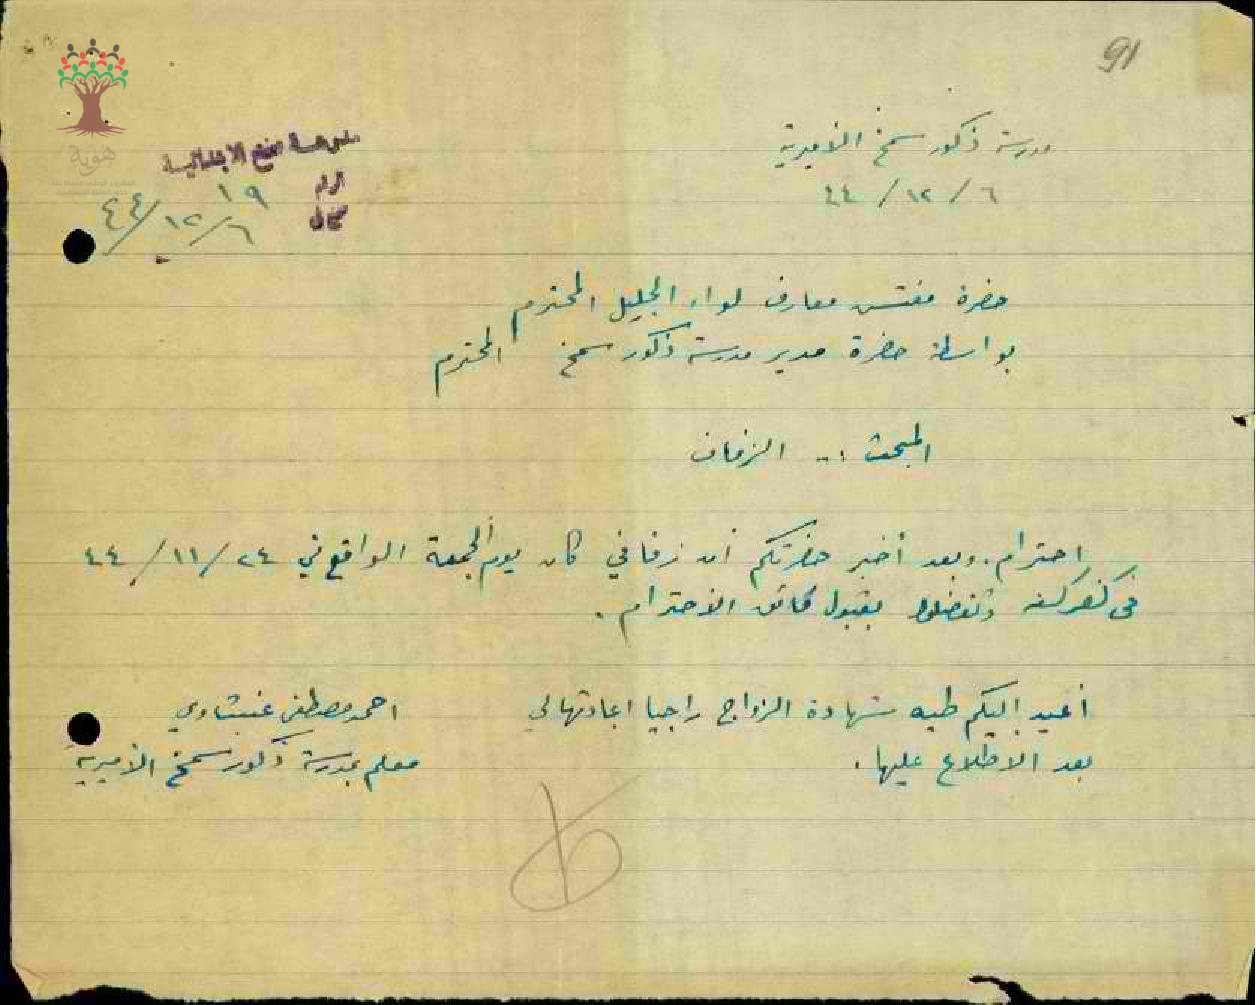 91
مدرسة ذكور سمخ الأميرية
٦ / ١٢ / ٤٤
مدرسة سمخ الابتدائية
الرقم ١٩
٦ / ١٢ / ٤٤
هوية
حضرة مفتش معارف لواء الجليل المحترم
بواسطة حضرة مدير مدرسة ذكور سمخ المحترم
المبحث :- الزفاف
احترام. وبعد أخبر حضرتكم أن زفافي كان يوم الجمعة الواقع في ٢٤ / ١١ / ٤٤
في كفركنه وتفضلوا بقبول فائق الاحترام.
أعيد إليكم طيه شهادة الزواج راجيا اعادتها لي
بعد الاطلاع عليها.
احمد مصطفى
معلم بمدرسة ذكور سمخ الأميرية